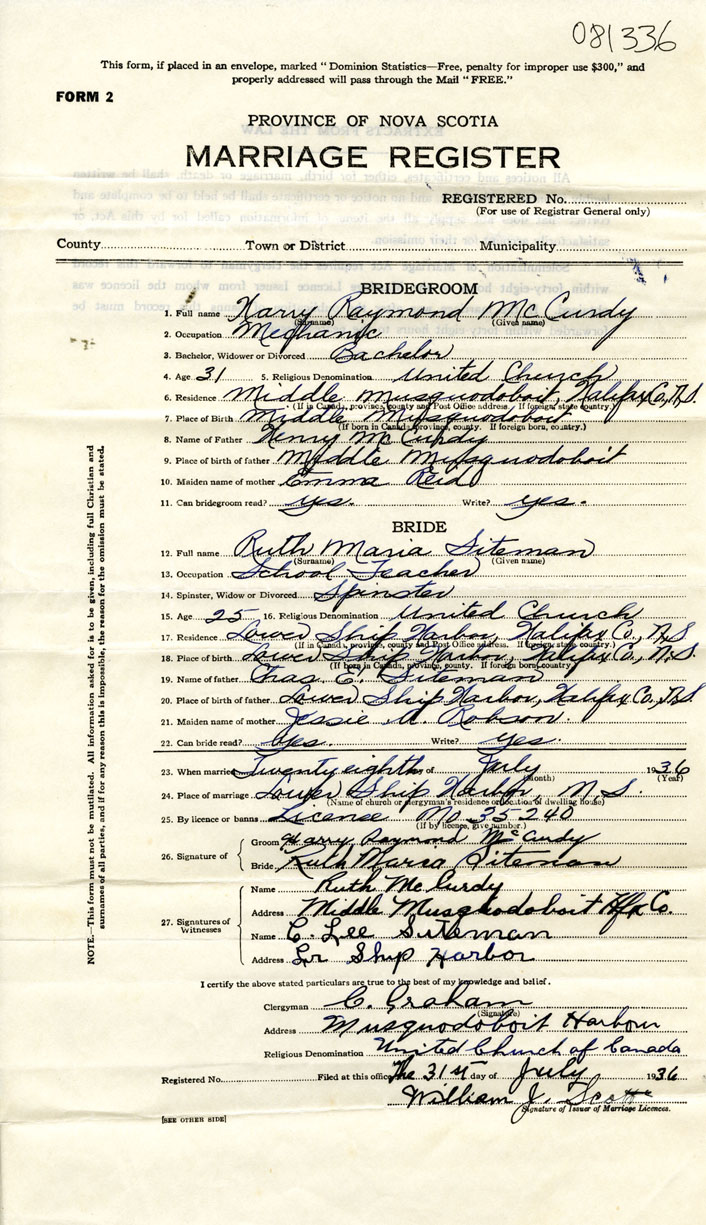 081336
This form, if placed in an envelope, marked "Dominion Statistics—Free, penalty for improper use $300," and
properly addressed will pass through the Mail "FREE."
FORM 2
PROVINCE OF NOVA SCOTIA
MARRIAGE REGISTER
REGISTERED No.
(For use of Registrar General only)
County Town or District Municipality
BRIDEGROOM
1. Full name Harry Raymond McCurdy
(Surname) (Given name)
2. Occupation Mechanic
3. Bachelor, Widower or Divorced Bachelor
4. Age 31 5. Religious Denomination United Church
6. Residence Middle Musquodoboit, Halifax Co, N.S.
(If in Canada, province, county and Post Office address. If foreign, state country.)
7. Place of Birth Middle Musquodoboit
(If born in Canada, province, county. If foreign born, country.)
8. Name of Father Henry McCurdy
9. Place of birth of father Middle Musquodoboit
10. Maiden name of mother Emma Reid
11. Can bridegroom read? yes. Write? yes.
BRIDE
12. Full name Ruth Maria Siteman
(Surname) (Given name)
13. Occupation School Teacher
14. Spinster, Widow or Divorced Spinster
15. Age 25 16. Religious Denomination United Church
17. Residence Lower Ship Harbor, Halifax Co., N.S
(If in Canada, province, county and Post Office address. If foreign, state country.)
18. Place of birth Lower Ship Harbor, Halifax Co., N.S.
(If born in Canada, province, county. If foreign born, country.)
19. Name of father Chas. E. Siteman
20. Place of birth of father Lower Ship Harbor, Halifax Co., N.S
21. Maiden name of mother Jessie Robson.
22. Can bride read? Yes. Write? Yes.
23. When married Twenty eighth of July 1936
(Month) (Year)
24. Place of marriage Lower Ship Harbor, N.S.
(Name of church or clergyman's residence or location of dwelling house)
25. By licence or banns License No. 35240
(If by licence, give number.)
26. Signature of
Groom Harry Raymond McCurdy
Bride Ruth Maria Siteman
27. Signatures of Witnesses
Name Ruth McCurdy
Address Middle Musquodoboit Hfx Co.
Name C. Lee Siteman
Address Lr Ship Harbor
I certify the above stated particulars are true to the best of my knowledge and belief.
Clergyman C. Graham
(Signature)
Address Musquodoboit Harbour
Religious Denomination United Church of Canada
Registered No. Filed at this office the 31st day of July 1936
William J. Scott
Signature of Issuer of Marriage Licences.
[SEE OTHER SIDE]
NOTE.—This form must not be mutilated. All information asked for is to be given, including full Christian and
surnames of all parties, and if for any reason this is impossible, the reason for the omission must be stated.